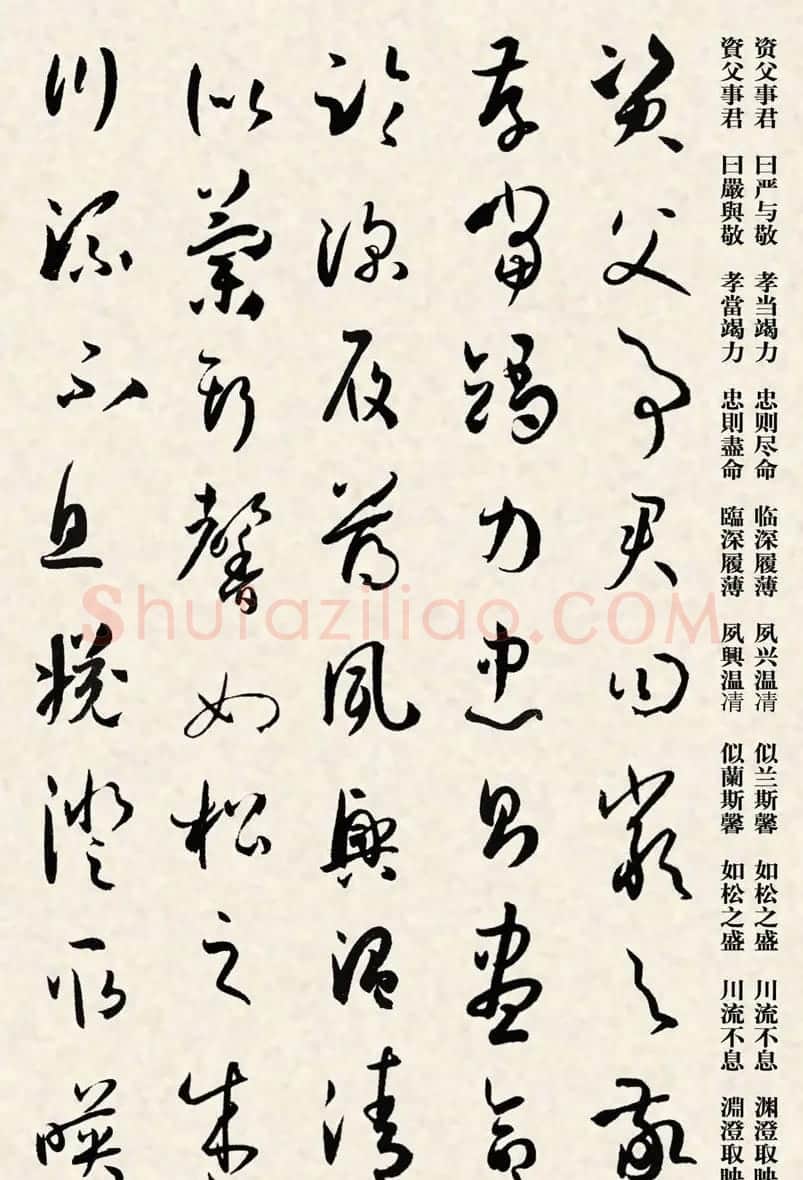 资父事君 曰严与敬 孝当竭力 忠则尽命 临深履薄 夙兴温凊 似兰斯馨 如松之盛 川流不息 渊澄取映
資父事君 曰嚴與敬 孝當竭力 忠則盡命 臨深履薄 夙興温凊 似蘭斯馨 如松之盛 川流不息 淵澄取映
資父事君曰嚴與敬
孝當竭力忠則盡命
臨深履薄夙興温清
似蘭斯馨如松之盛
川流不息淵澄取暎
Shufaziliao.COM